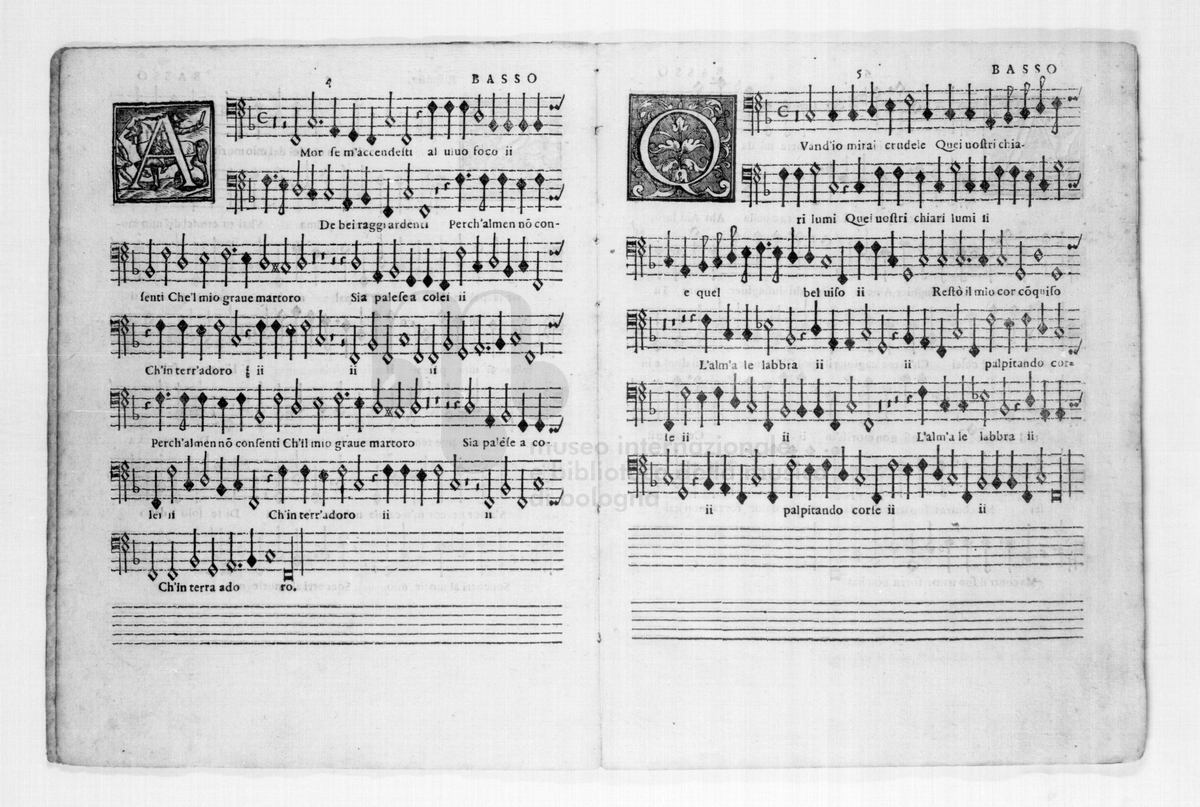 4 BASSO
AMor se m'accendesti al uiuo foco ii
De bei raggi ardenti Perch'almen nõ con-
senti Che'l mio graue martoro Sia palese a colei ii
Ch'in terr'adoro ii ii ii
Perch'almen nõ consenti Ch'il mio graue martoro Sia palese a co-
lei ii Ch'in terr'adoro ii ii
Ch'in terra ado ro.
5 BASSO
QVand'io mirai crudele Quei uostri chia-
ri lumi Quei uostri chiari lumi ii
e quel bel uiso ii Restò il mio cor cõquiso
L'alm'a le labbra ii ii palpitando cor-
se ii ii L'alm'a le labbra ii
ii palpitando corse ii ii
museo internazionale
e biblioteca della musica
di bologna